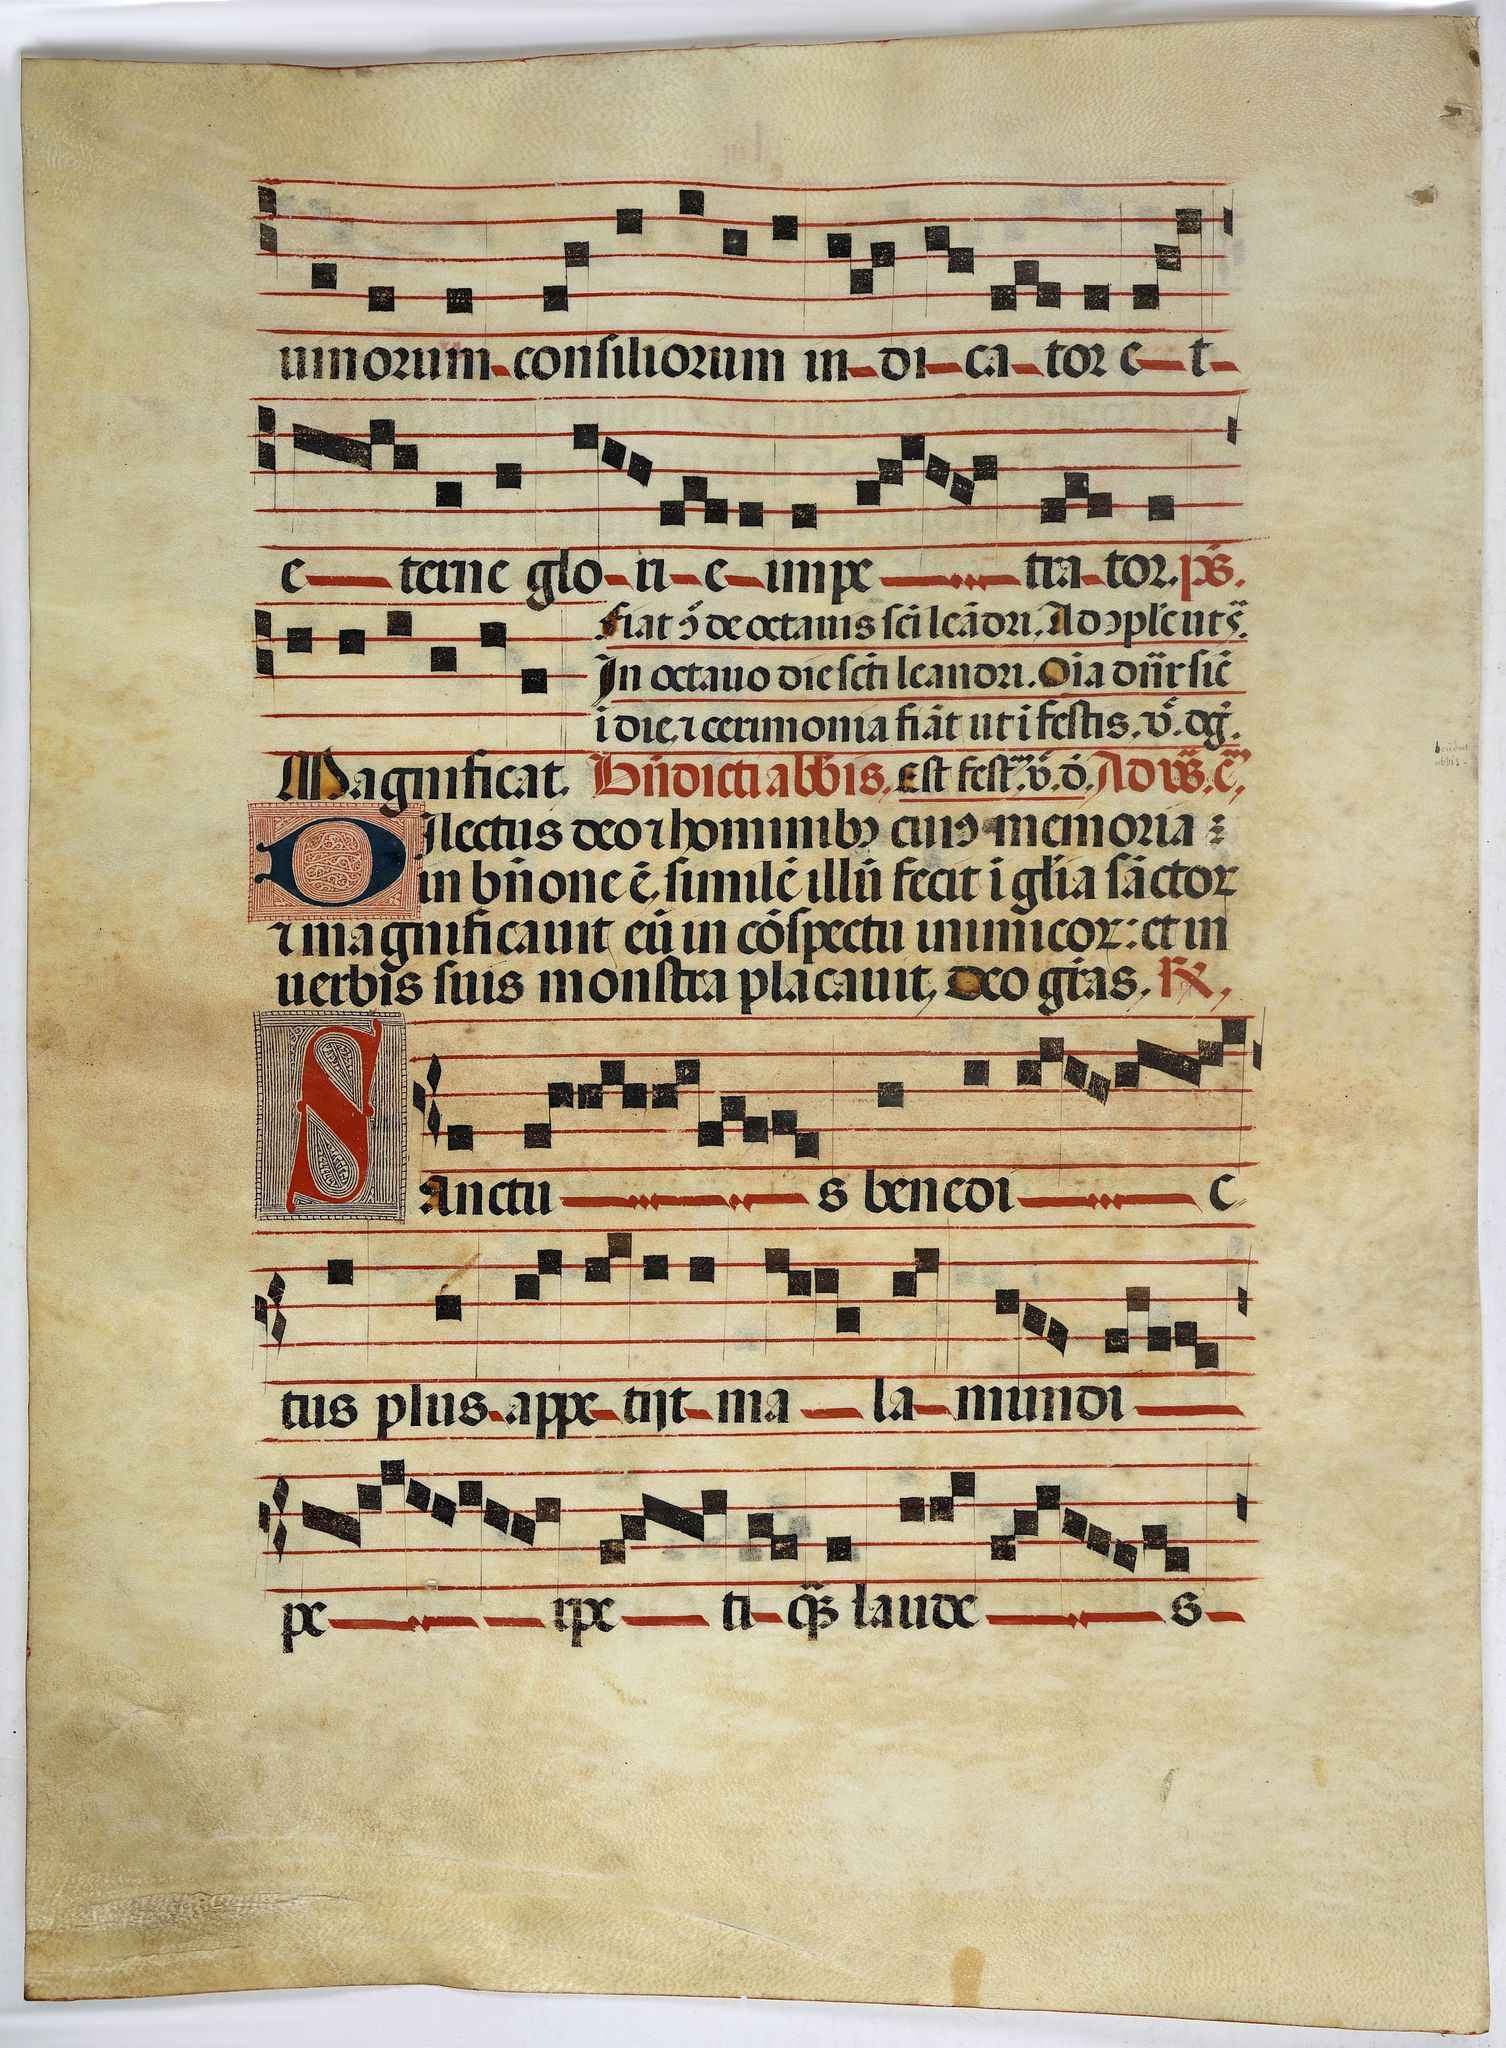 uinorum consiliorum in di ca tor e t
e terne glo ri e impe tra tor. ps.
fiat ɔ̃ de octauis sci leãdri. Ad ɔplẽ ut sͣ.
In octauo die scti leandri. Oĩa dñr sic̃
ĩ die ⁊ cerimonia fiãt ut ĩ festis. v̾. dĩg.
Magnificat. Bñdicti abbis. Est festͫ. v̾. ð. Ad vs̃. cͣ.
Dilectus deo ⁊ hominibꝫ cuiꝰ memoria
in bñone ẽ. similẽ illũ fecit ĩ glĩa sãctoꝝ
⁊ magnificauit eũ in cõspectu inimicoꝝ: et in
uerbis suis monstra placauit. deo gr̃as. ℟.
Sanctu s benedi c
tus plus appe tijt ma la mundi
pe rpe ti qͣꝫ laude s